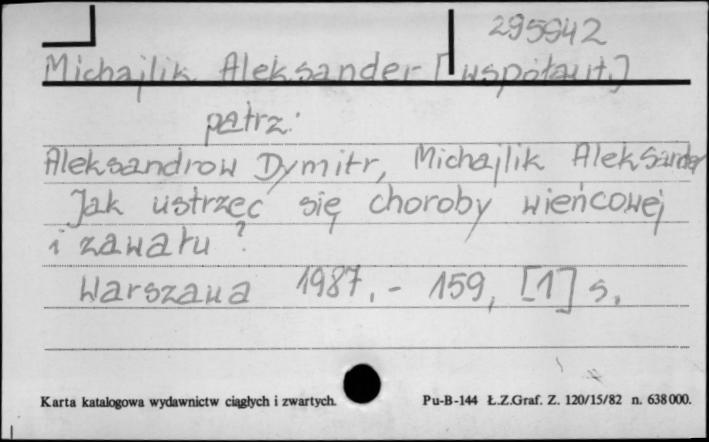 295942
Michajlik Aleksander [współaut.]
patrz:
Aleksandrow Dymitr, Michajlik Aleksander
Jak ustrzec się choroby wieńcowej
i zawału?
Warszawa 1987.- 159, [1] s.
Karta katalogowa wydawnictw ciągłych i zwartych. Pu-B-144 Ł.Z.Graf. Z. 120/15/82 n. 638 000.